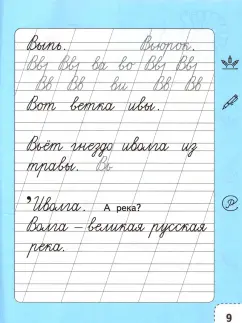 Выпь. Вьюрок.
Вв Вв ва во Вв Вв
Вв Вв ви Вв Вв
Вот ветка ивы.
Вьёт гнездо иволга из
травы. Вь
’Иволга. А река?
Волга – великая русская
река.
9